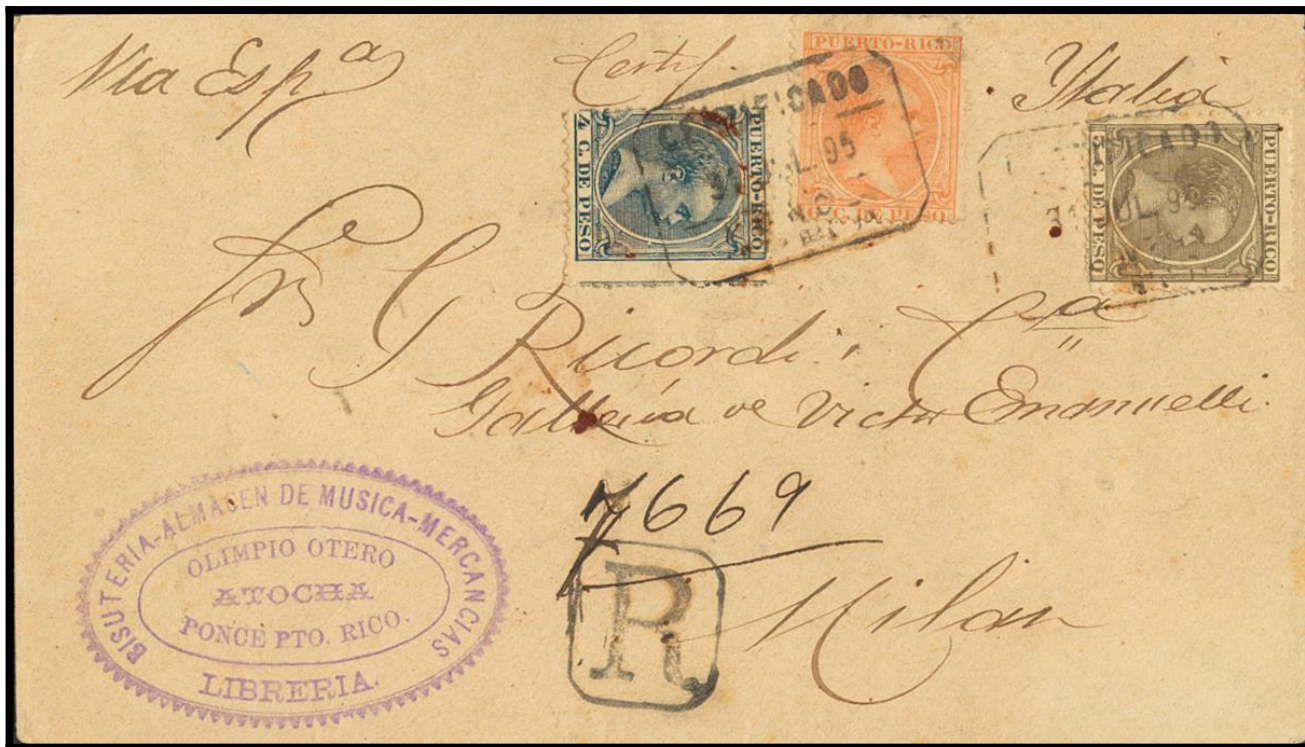 Via Espª
Certf.
Italia
PUERTO-RICO
4 C. DE PESO
PUERTO-RICO
C. DE PESO
PUERTO-RICO
5 C. DE PESO
CERTIFICADO
JUL. 95
CERTIFICADO
31 JUL. 95
G Ricordi i Cª
Galleria de Victor Emanuelli.
7669
R
Milan
BISUTERIA-ALMACEN DE MUSICA-MERCANCIAS
OLIMPIO OTERO
ATOCHA
PONCE PTO. RICO.
LIBRERIA.